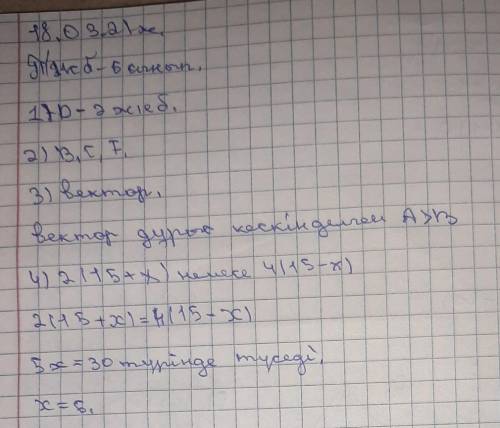 18.03.21ж.
ТЖБ-6 сынып.
1) D-2 жеб.
2) В, С, F,
3) вектор,
вектор дұрыс кескінделген А>В
4) 2(15+x) немесе 4(15-x)
2(15+x)=4(15-x)
5x=30 түрінде түседі.
x=6.